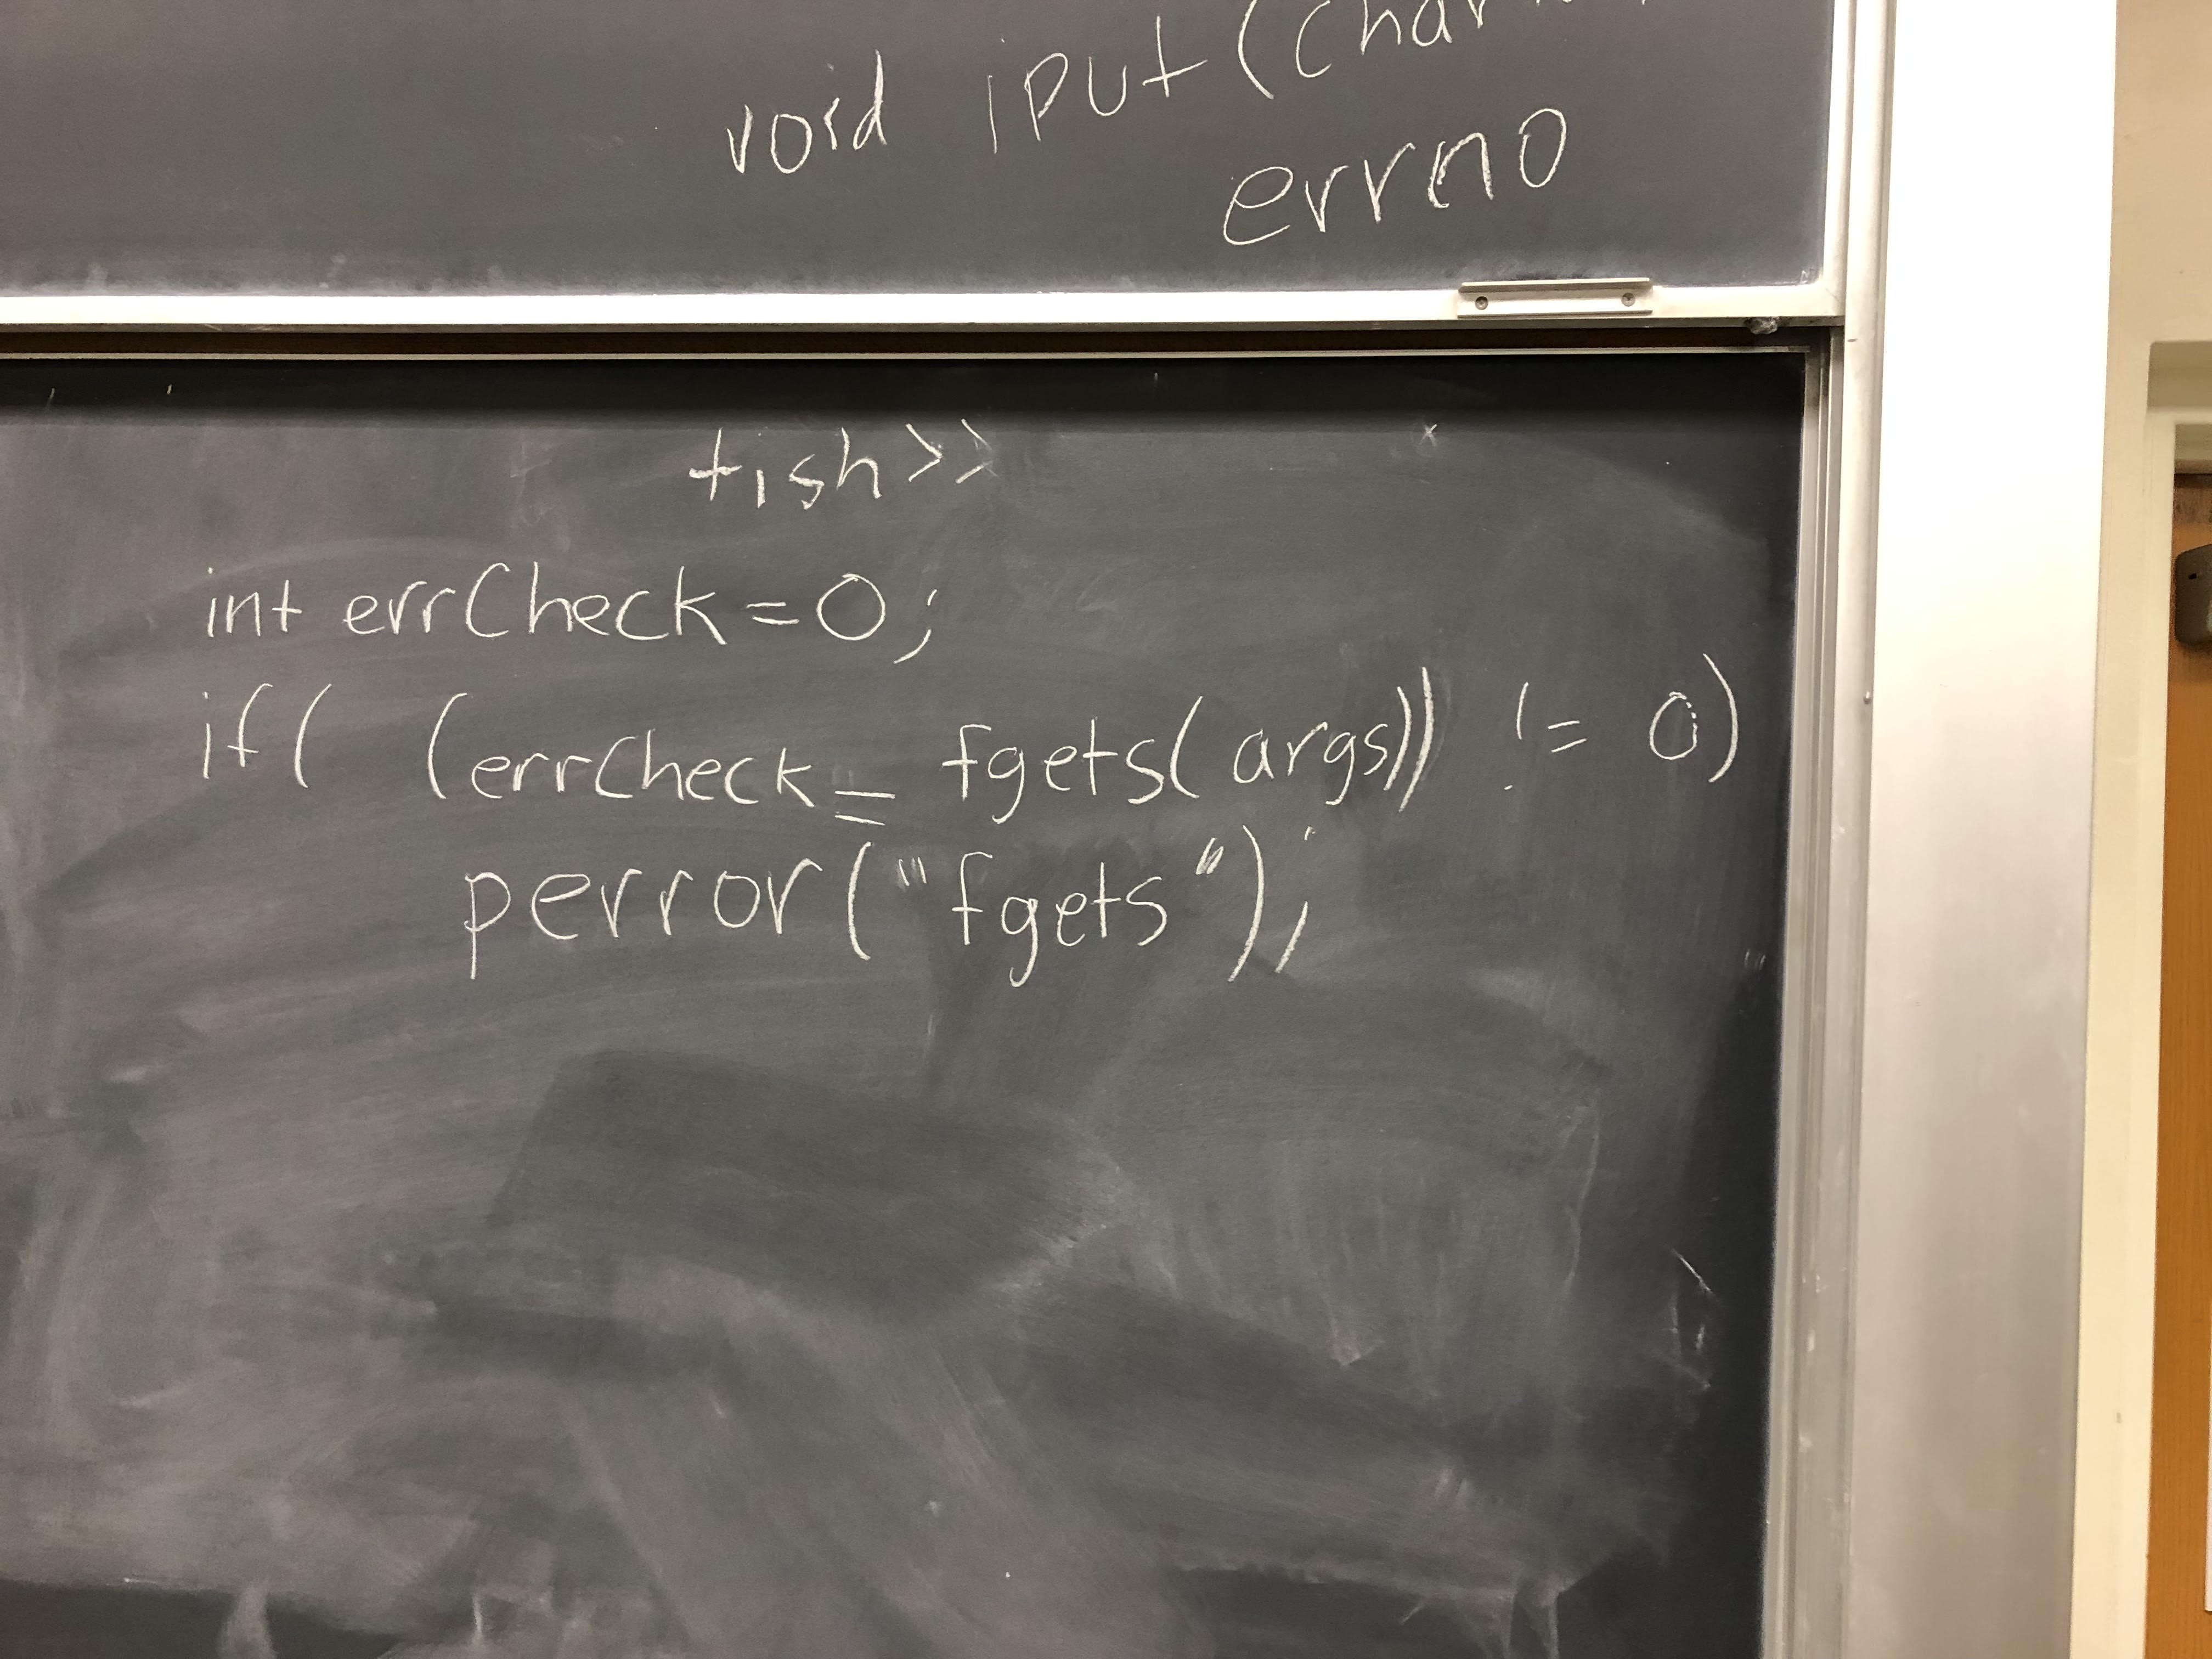 void iput(char
errno
tish>>
int errCheck=0;
if( (errCheck= fgets(args)) != 0)
perror("fgets");